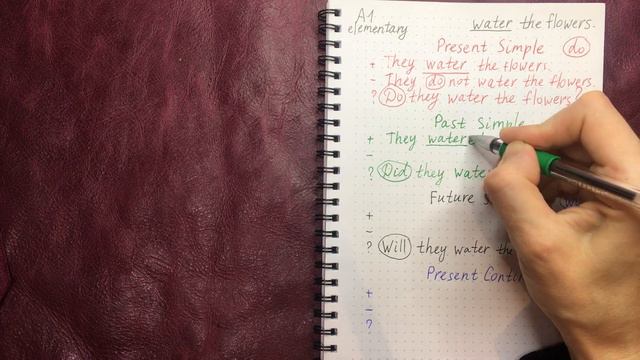 A1
elementary
water the flowers.
Present Simple do
+ They water the flowers.
- They do not water the flowers.
? Do they water the flowers?
Past Simple
+ They water
-
? Did they wate
Future
+
-
? Will they water the
Present Contin
+
-
?